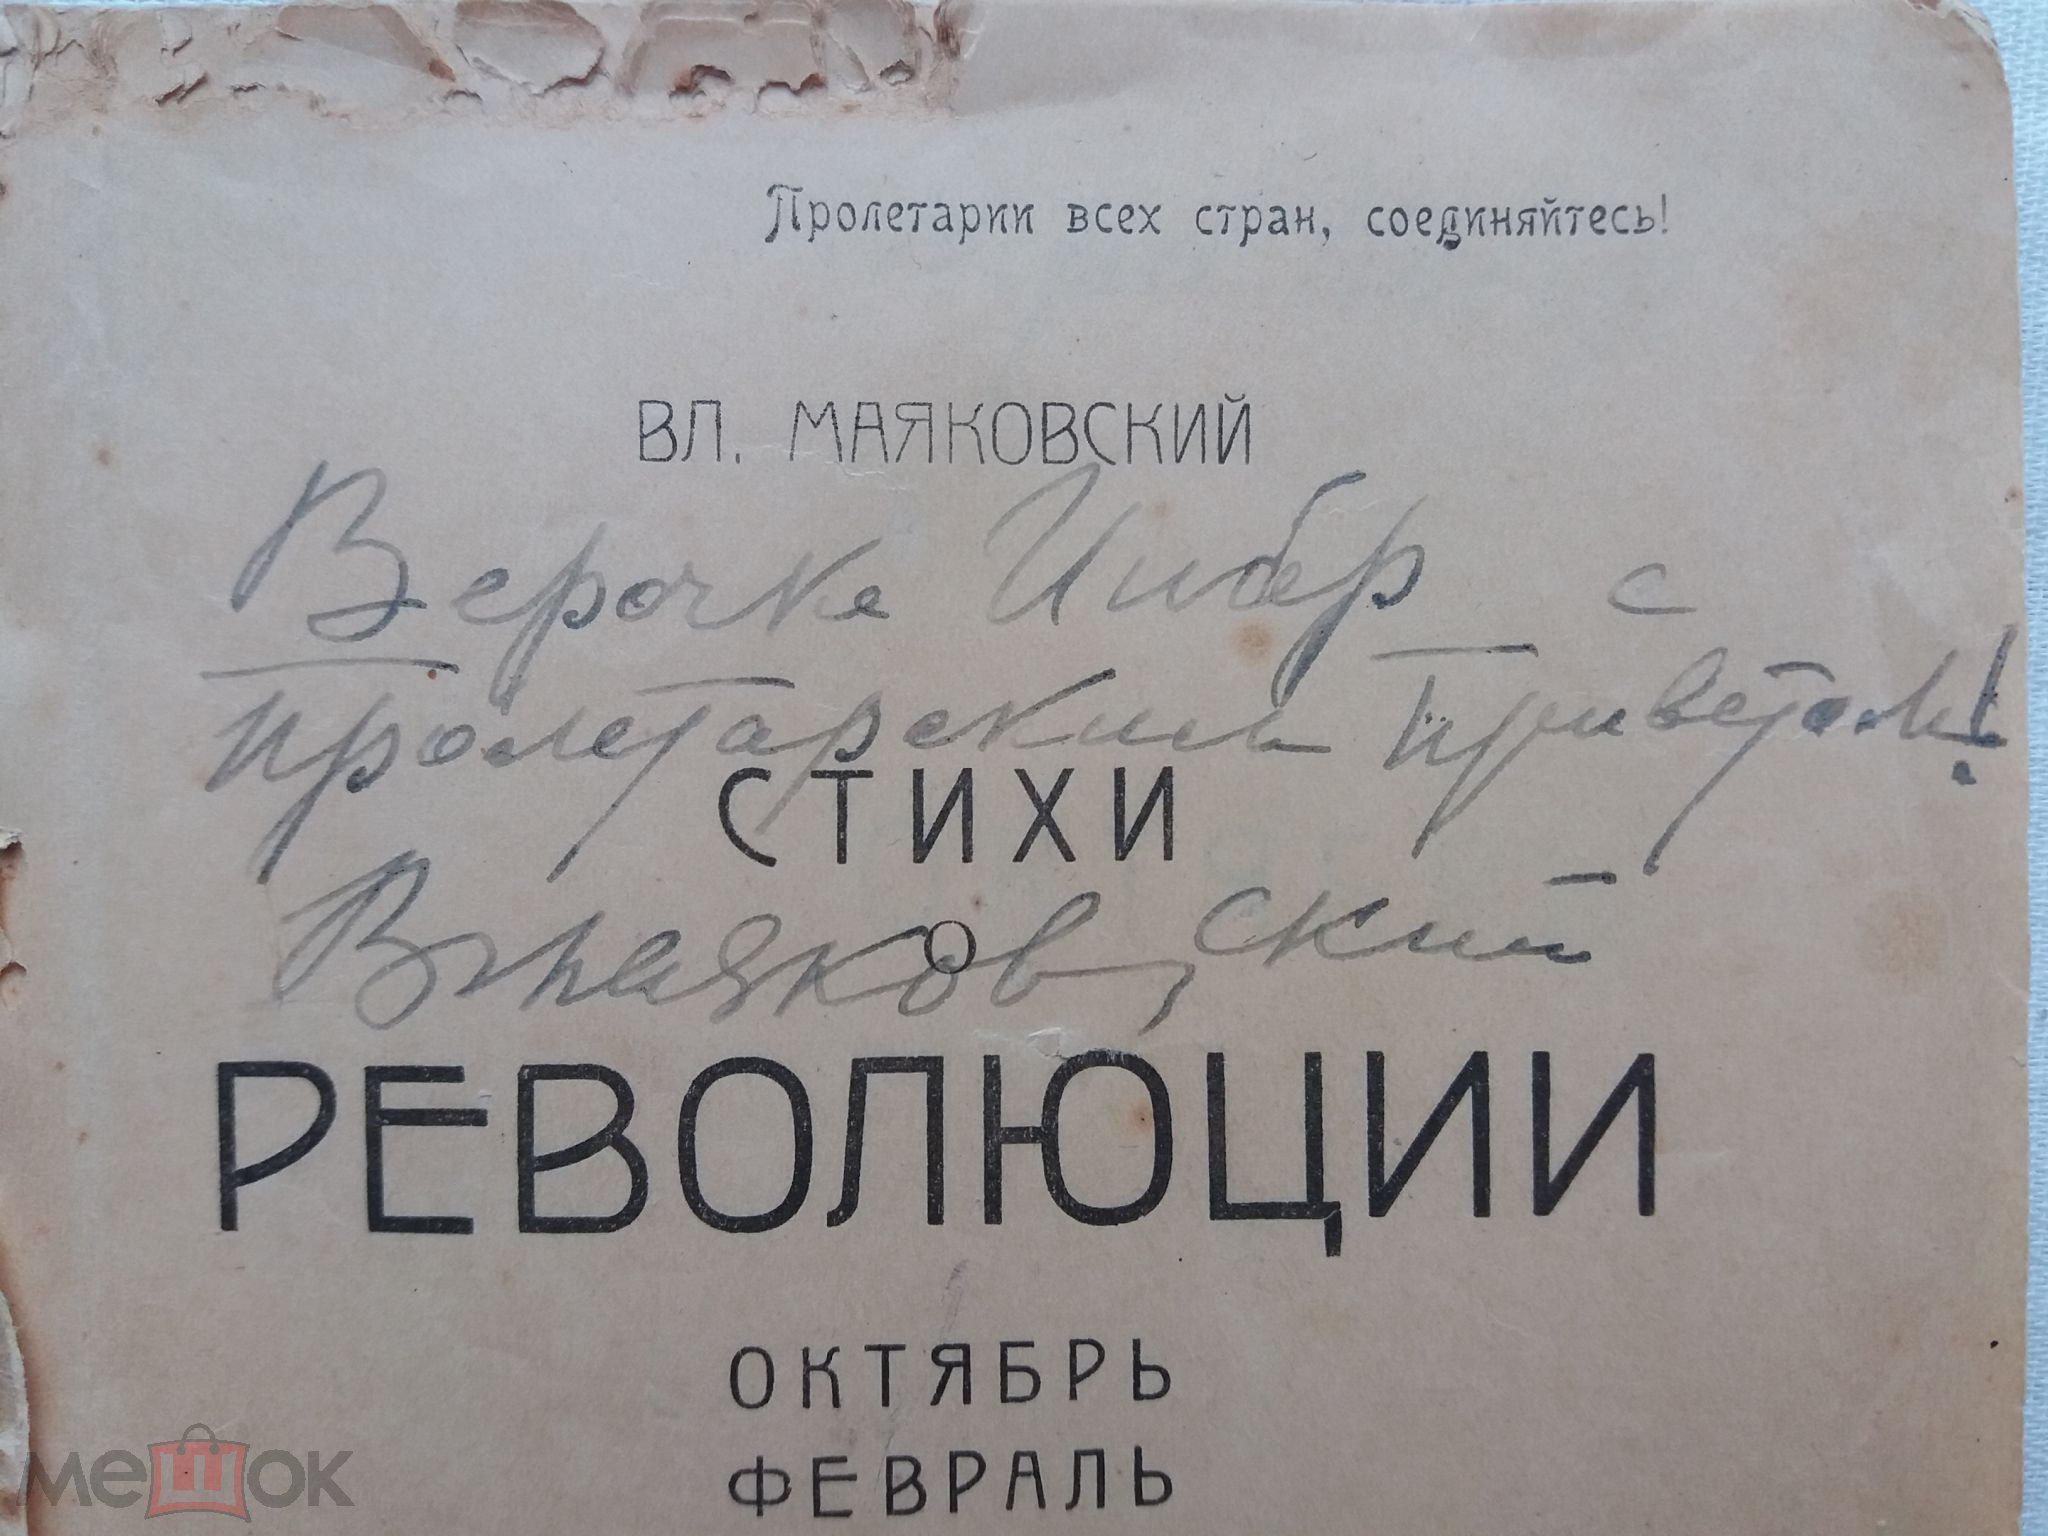 Пролетарии всех стран, соединяйтесь!
ВЛ. МАЯКОВСКИЙ
Верочке Инбер с
пролетарским приветом!
СТИХИ
ВМаяковский
О
РЕВОЛЮЦИИ
ОКТЯБРЬ
ФЕВРАЛЬ
мешок